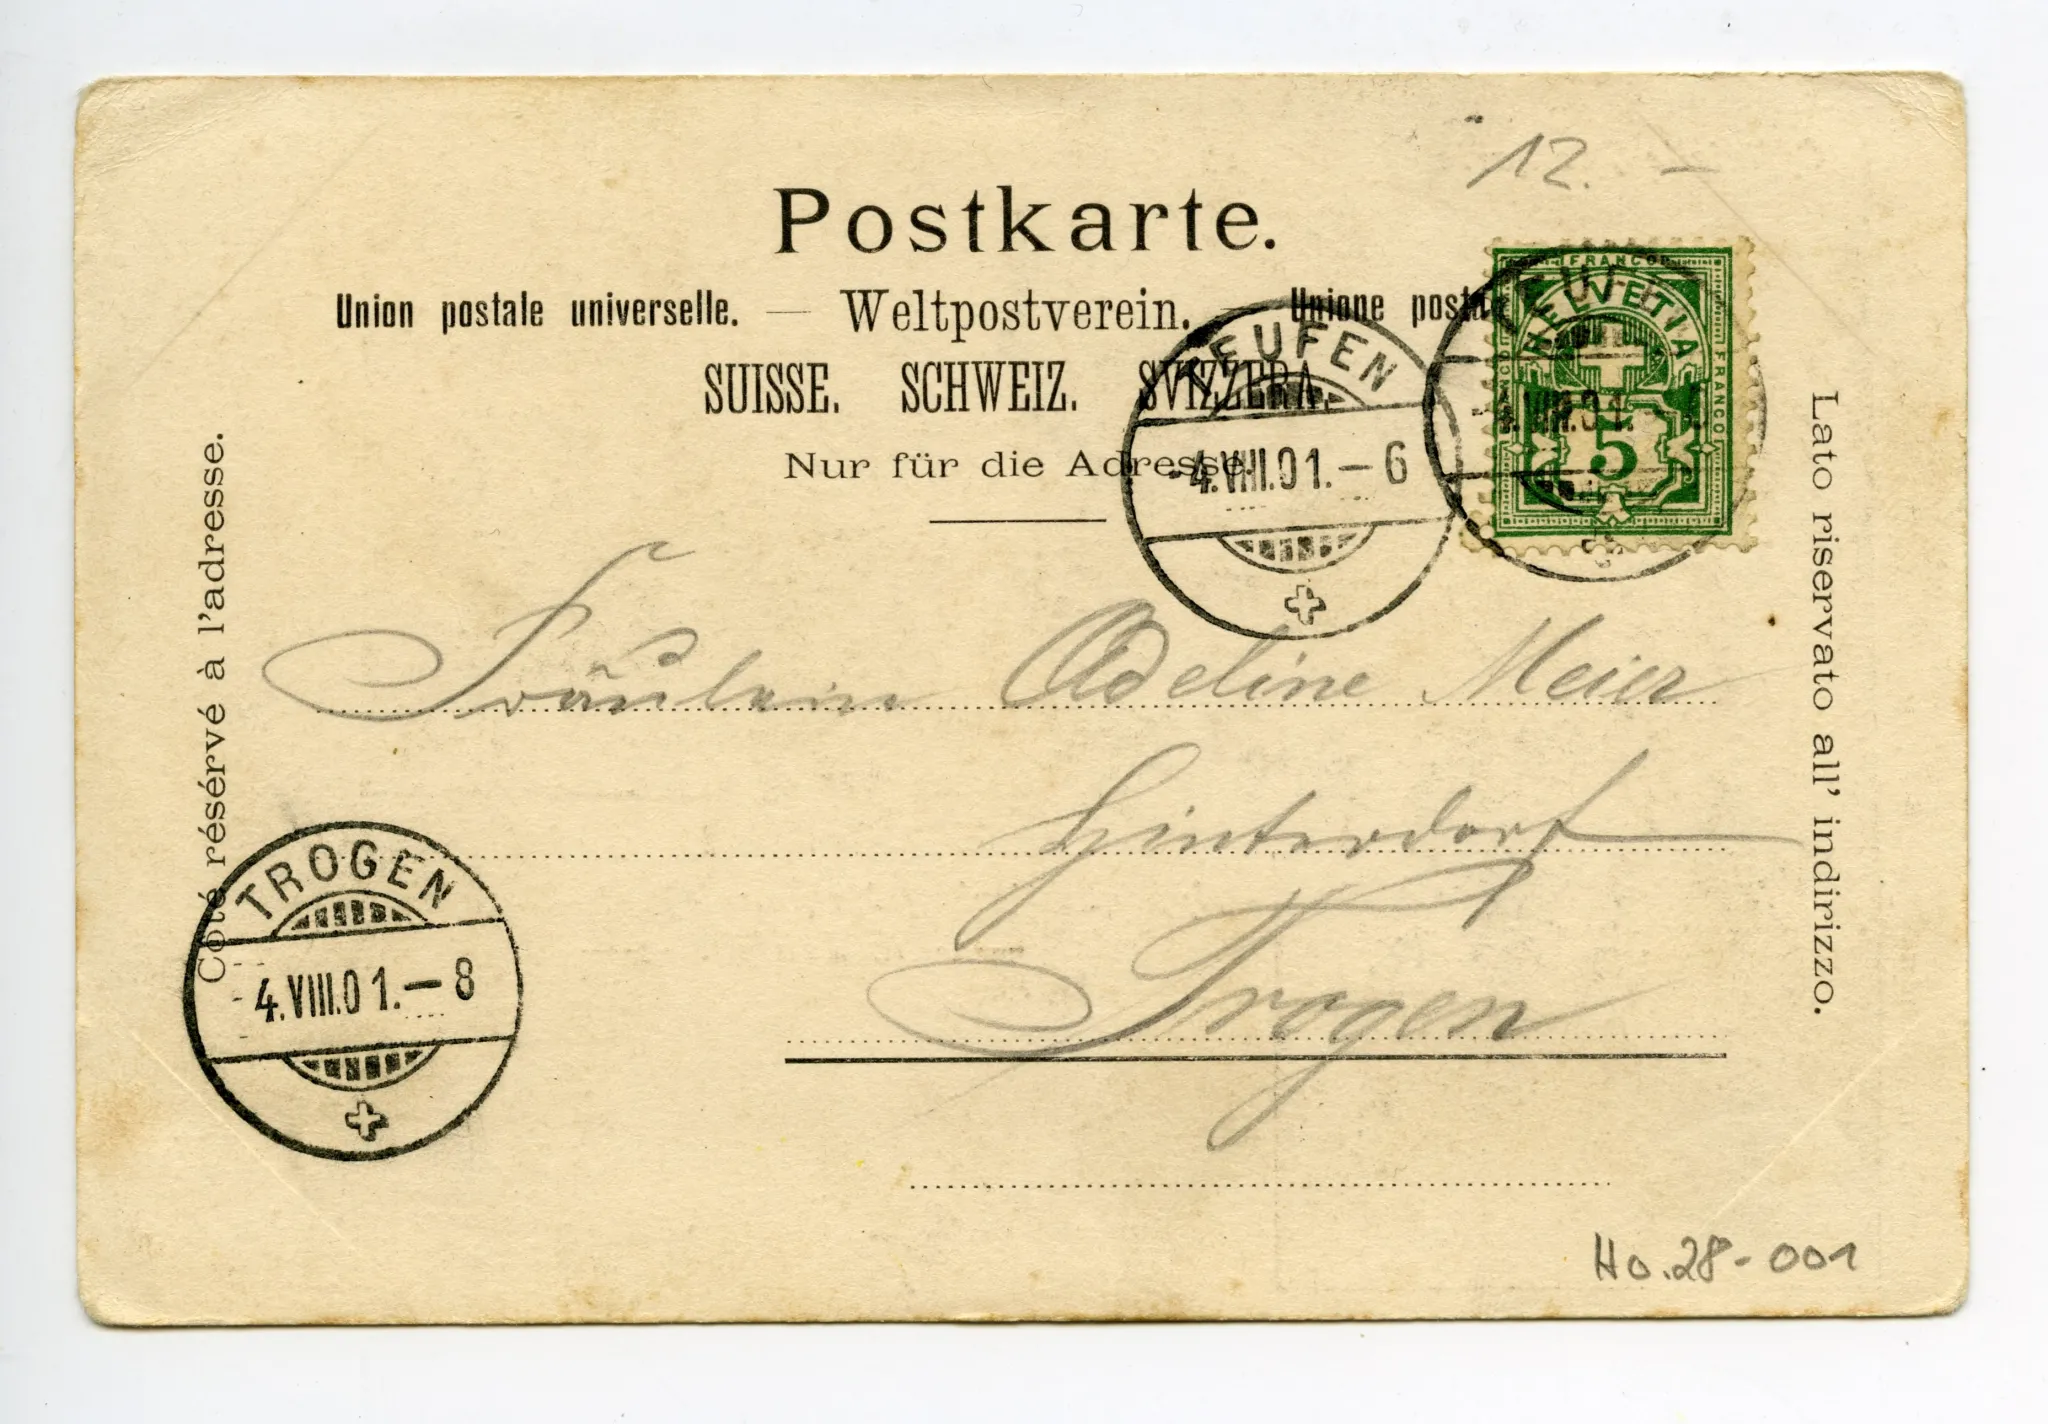 12. –
Postkarte.
Union postale universelle. — Weltpostverein. — Unione posta
SUISSE. SCHWEIZ. SVIZZERA.
Nur für die Adresse.
FRANCO
HELVETIA
FRANCO
FRANCO
5
TEUFEN
4.VIII.01.
TEUFEN
-4.VIII.01.–6
Côté résérvé à l'adresse.
Lato riservato all' indirizzo.
Fräulein Adeline Meier
Hinterdorf
Trogen
TROGEN
4.VIII.01.–8
Ho.28-001